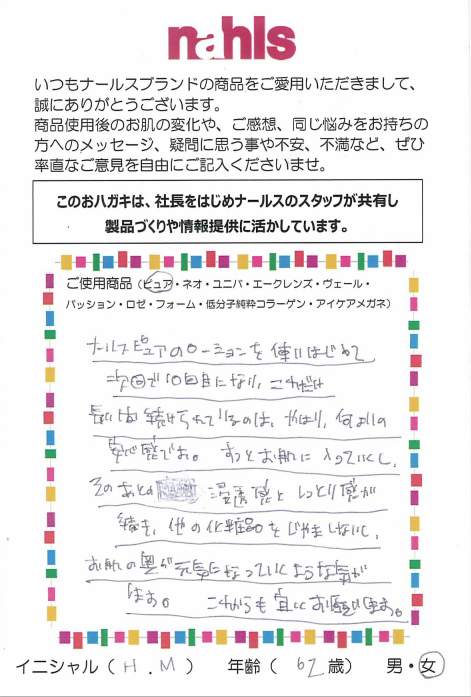 nahls
いつもナールスブランドの商品をご愛用いただきまして、
誠にありがとうございます。
商品使用後のお肌の変化や、ご感想、同じ悩みをお持ちの
方へのメッセージ、疑問に思う事や不安、不満など、ぜひ
率直なご意見を自由にご記入くださいませ。
このおハガキは、社長をはじめナールスのスタッフが共有し
製品づくりや情報提供に活かしています。
ご使用商品（ピュア・ネオ・ユニバ・エークレンズ・ヴェール・
パッション・ロゼ・フォーム・低分子純粋コラーゲン・アイケアメガネ）
ナールスピュアのローションを使いはじめて
次回で10回目になり、これだけ
長い間続けられているのは、やはり、何よりの
です。すっとお肌に入っていくし、
そのあとの 浸透感としっとり感が
続き、他の化粧品をじゃましないし、
お肌の奥が元気になっていくような気が
します。これからも宜しくお願いします。
イニシャル（H.M）年齢（62歳）男・女